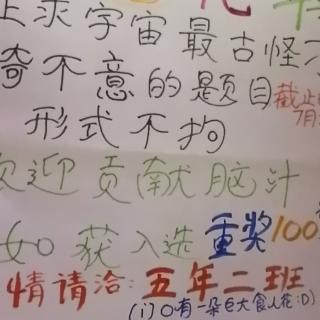 上求宇宙最古怪
奇不意的题目
截止
7月
形式不拘
欢迎贡献脑汁
如获入选重奖100
情请洽:五年二班
(门口有一朵巨大食人花:D)